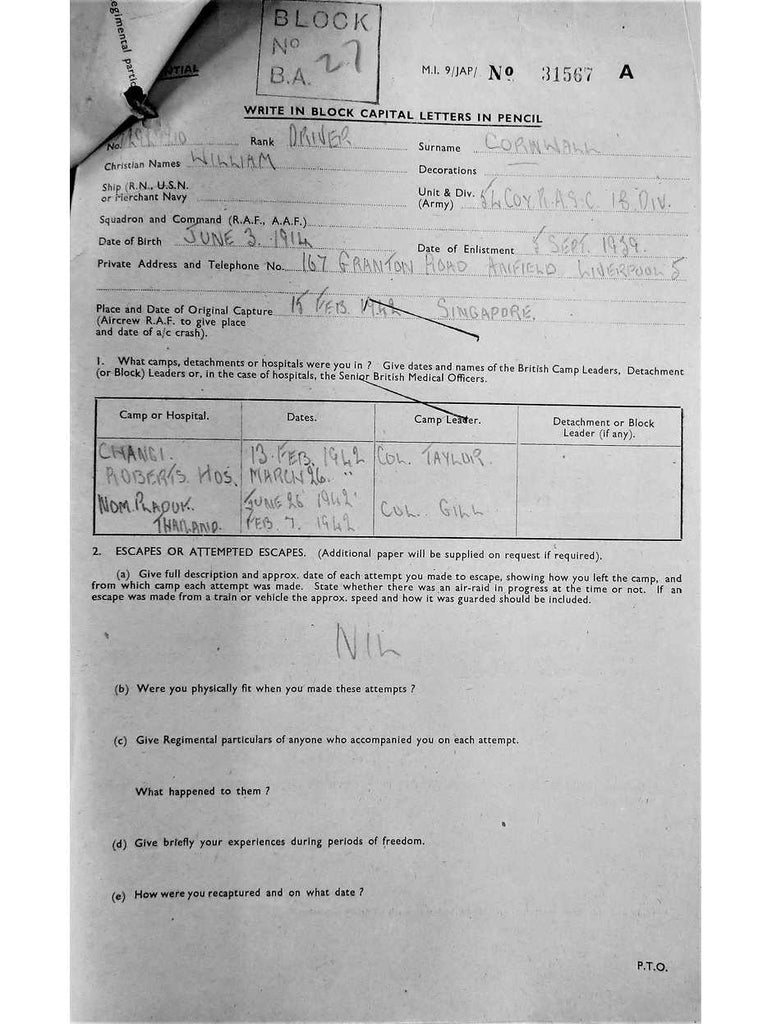 egimental partic
NTIAL
BLOCK
Nº
B.A. 27
M.I. 9/JAP/ Nº 31567 A
WRITE IN BLOCK CAPITAL LETTERS IN PENCIL
No. Rank DRIVER Surname CORNWALL
Christian Names WILLIAM Decorations
Ship (R.N., U.S.N. or Merchant Navy
Unit & Div. (Army) 54 COY. R.A.S.C 18 DIV.
Squadron and Command (R.A.F., A.A.F.)
Date of Birth JUNE 3. 1914 Date of Enlistment SEPT. 1939.
Private Address and Telephone No. 167 GRANTON ROAD ANFIELD LIVERPOOL 5
Place and Date of Original Capture 15 FEB. 1942 SINGAPORE.
(Aircrew R.A.F. to give place
and date of a/c crash).
1. What camps, detachments or hospitals were you in ? Give dates and names of the British Camp Leaders, Detachment
(or Block) Leaders or, in the case of hospitals, the Senior British Medical Officers.
Camp or Hospital. Dates. Camp Leader. Detachment or Block
Leader (if any).
CHANGI. 13. FEB. 1942 COL. TAYLOR.
ROBERTS HOS. MARCH 26. "
NOM. PLADUK. JUNE 26 1942 COL. GILL
THAILAND. FEB. 7. 1942
2. ESCAPES OR ATTEMPTED ESCAPES. (Additional paper will be supplied on request if required).
(a) Give full description and approx. date of each attempt you made to escape, showing how you left the camp, and
from which camp each attempt was made. State whether there was an air-raid in progress at the time or not. If an
escape was made from a train or vehicle the approx. speed and how it was guarded should be included.
NIL
(b) Were you physically fit when you made these attempts ?
(c) Give Regimental particulars of anyone who accompanied you on each attempt.
What happened to them ?
(d) Give briefly your experiences during periods of freedom.
(e) How were you recaptured and on what date ?
P.T.O.